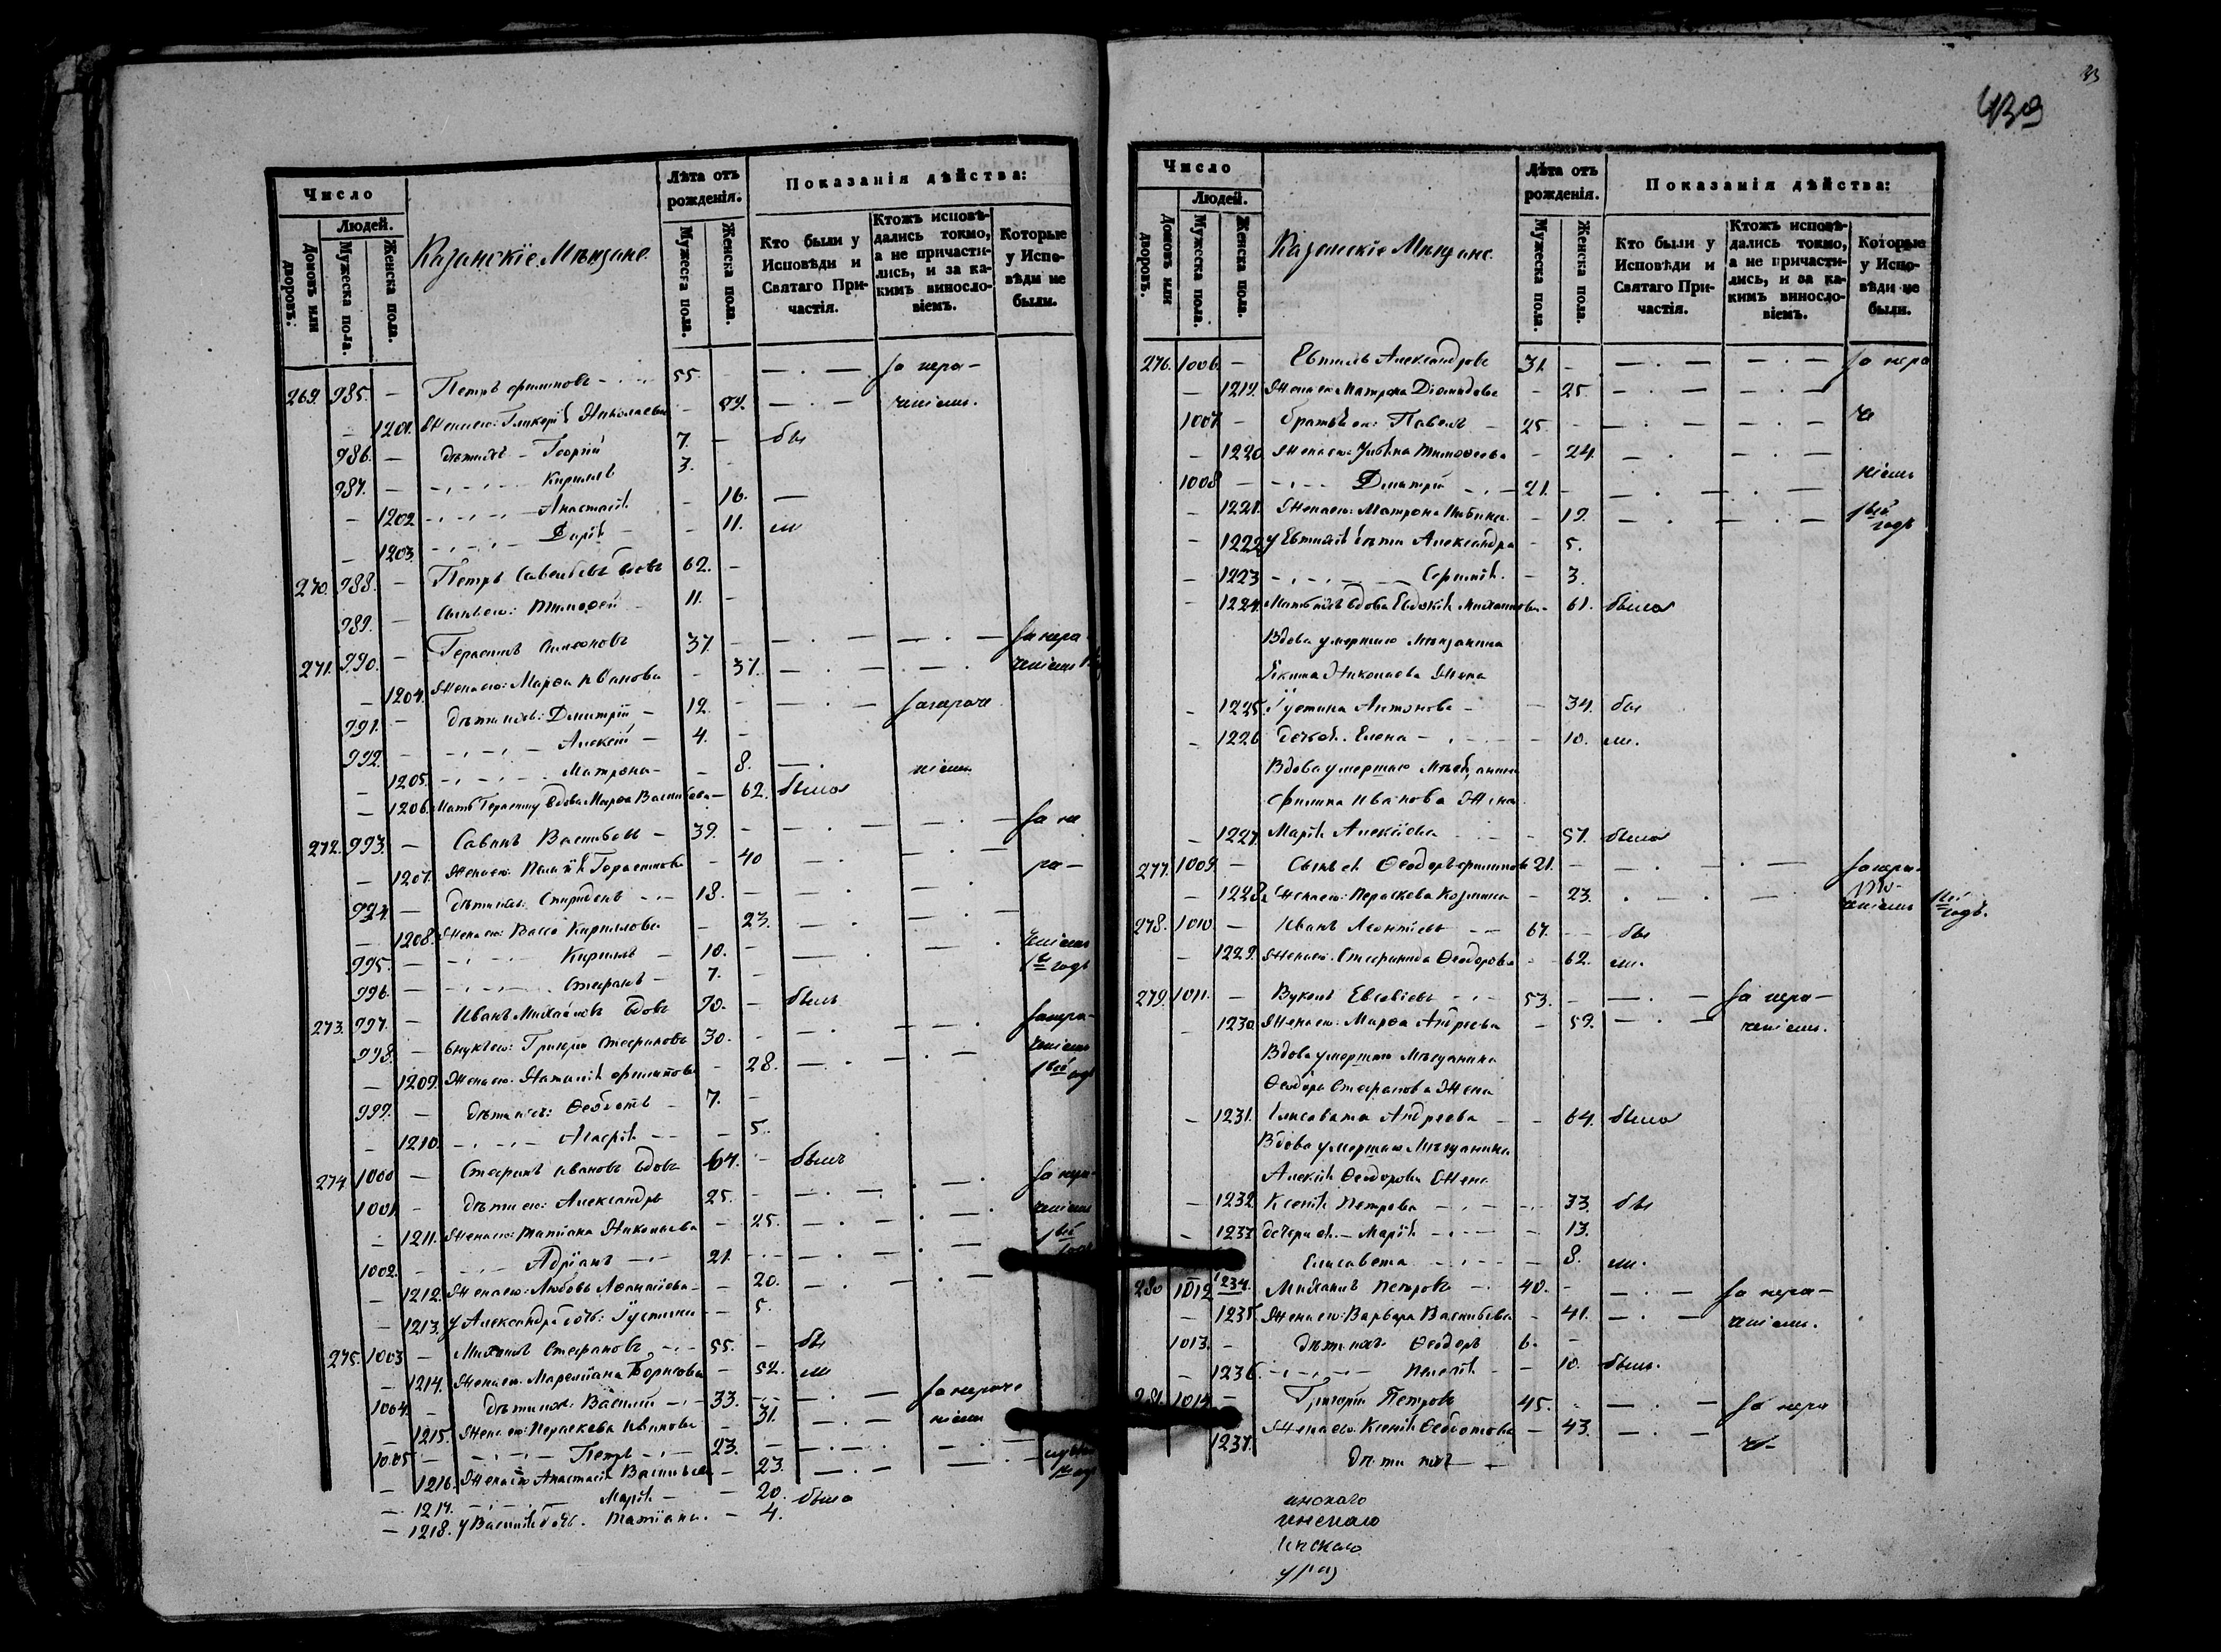 33
439
Число
Людей.
Домовъ или дворовъ.
Мужеска пола.
Женска пола.
Казанскіе Мѣщане.
Лѣта отъ рожденія.
Мужеска пола.
Женска пола.
Показанія дѣйства:
Кто были у Исповѣди и Святаго Причастія.
Ктожъ исповѣдались токмо, а не причастились, и за какимъ винословіемъ.
Которые у Исповѣди не были.
269. 985. — Петръ Филиповъ 55. — за нера-
— 1201. Жена его: Гликерія Николаева — 54. чініемъ.
986. — дѣти ихъ — Георгій 7. — бы
987. — Кириллъ 3. —
— 1202 Анастасія — 16. —
— 1203. Дарія — 11. ли
270. 988. — Петръ Савельевъ вдовъ 62. —
989. — сынъ его: Тимофей 11. —
271. 990. — Герасимъ Симеоновъ 37. — за нера-
— 1204. Жена его: Марѳа Иванова — 37. чініемъ
991. — дѣти ихъ: Димитрій 12. — занераче
992. — Алексій 4. —
— 1205. Матрона — 8. ніемъ
— 1206. Мать Герасиму вдова Марѳа Васильева — 62. была
272. 993. — Савинъ Васильевъ 39. — за не
— 1207. Жена его: Пелагія Герасимова — 40 ра-
994. — дѣти ихъ: Спиридонъ 18. —
— 1208. Жена его: Васса Кириллова — 23. чініемъ
995. — Кириллъ 10. — 1й годъ
996. — Стефанъ 7. —
273. 997. — Иванъ Михайловъ вдовъ 70. — былъ
998. — внукъ его: Григорій Стефановъ 30. — занера-
— 1209. Жена его: Наталія Филипова — 28. чініемъ 1вый годъ
999. — дѣти ихъ: Ѳеодотъ 7. —
— 1210. Агафія — 5.
274. 1000 — Стефанъ Ивановъ вдовъ 67. — былъ
1001. — дѣти его: Александръ 25. — за нера-
— 1211. Жена его: Татіана Николаева — 25. чініемъ
1002. — Адріанъ 21. — 1вый годъ
— 1212. Жена его: Любовь Аѳанасіева — 20.
— 1213. у Александра дочь: Густина — 5.
275. 1003 — Михаилъ Стефановъ 55. — бы
— 1214. Жена его: Мареміана Борисова — 52. ли
1004. — дѣти ихъ: Василій 33. — за нераче
— 1215. Жена его: Параскева Иванова — 31. ніемъ
1005 — Петръ 23. —
— 1216. Жена его Анастасія Васильева — 23.
— 1217. Марія — 20. была
— 1218. у Василія дочь. Татіана. — 4.
Число
Людей.
Домовъ или дворовъ.
Мужеска пола.
Женска пола.
Казанскіе Мѣщане.
Лѣта отъ рожденія.
Мужеска пола.
Женска пола.
Показанія дѣйства:
Кто были у Исповѣди и Святаго Причастія.
Ктожъ исповѣдались токмо, а не причастились, и за какимъ винословіемъ.
Которые у Исповѣди не были.
276. 1006. — Евтихій Александровъ 31. — за нера
— 1219. Жена его Матрона Діомидова — 25.
1007 — братъ ея: Павелъ 25. — че
— 1220 Жена его Улбяна Тимофеева — 24.
1008 — Димитрій 21. — ніемъ
— 1221. Жена его: Матрона — 19. 1вый годъ
— 1222 у Евтихія дѣти Александра — 5.
— 1223 — 3.
— 1224. Мать ихъ вдова Евдокія Михайлова — 61. была
Вдова умершаго Мѣщанина
Никита Николаева Жена
— 1225. Густина Антонова — 34. бы
— 1226 дочь ея. Елена — 10. ли.
Вдова умершаго Мѣщанина
Филипа Иванова Жена
— 1227. Марія Алексіева — 57. была
277. 1009. — Сынъ ея Ѳеодоръ Филиповъ 21. — занера-
— 1228. Жена его: Параскева Козмина — 23. чініемъ 1вый годъ.
278. 1010. — Иванъ Леонтіевъ 67. — бы
— 1229. Жена его. Стефанида Ѳеодорова — 62. ли.
279. 1011. — Вуколъ Евсевіевъ 53. — за нера-
— 1230. Жена его: Марѳа Андреева — 52. чініемъ.
Вдова умершаго Мѣщанина
Ѳеодора Стефанова Жена
— 1231. Елисавета Андреева — 64. была
Вдова умершаго Мѣщанина
Алексія Ѳеодорова Жена
— 1232. Ксенія Петрова — 33. бы
— 1233 дочери ея. — Марія — 13.
1234. Елисавета — 8. ли.
280 1012 Михаилъ Петровъ 40. — за нера-
— 1235. Жена его: Варвара Васильева — 41. чініемъ.
1013. — дѣти ихъ: Ѳеодоръ 6. —
— 1236. Пелагія — 10. были.
281. 1014. — Григорій Петровъ 45. — за нера
1237. Жена его: Ксенія Ѳеодотова — 43. че-
дѣти ихъ —